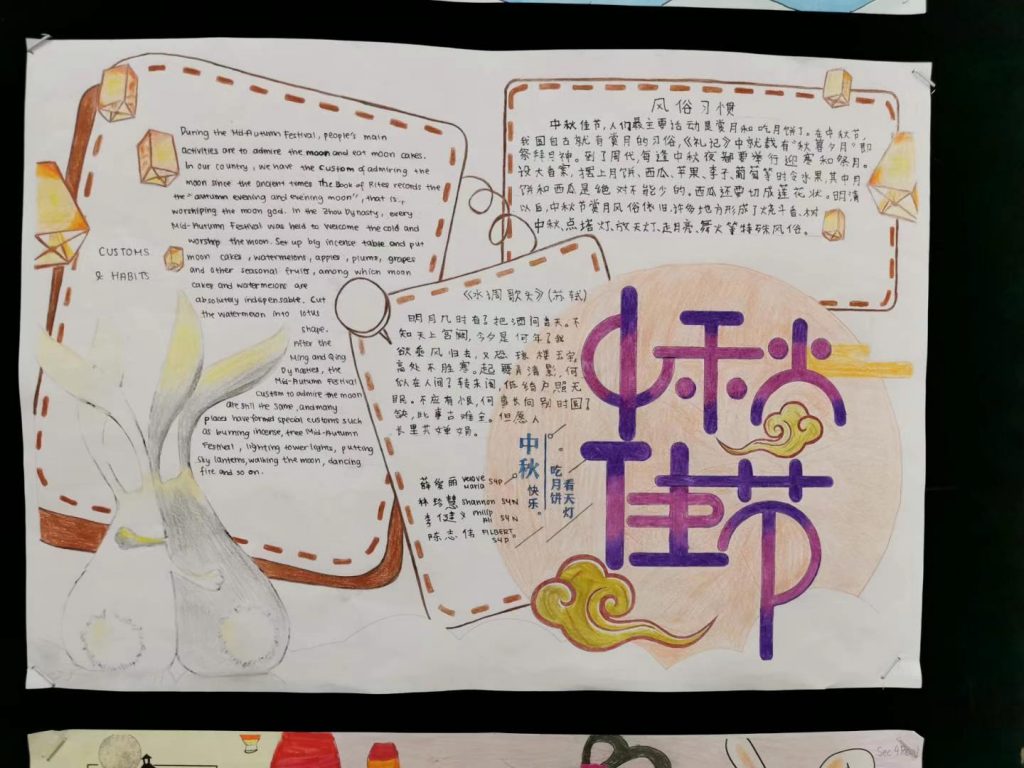 CUSTOMS
& HABITS
During the Mid-Autumn Festival, people's main
activities are to admire the moon and eat moon cakes.
In our country, we have the custom of admiring the
moon since the ancient times. The Book of Rites records the
the "autumn evening and evening moon", that is,
worshiping the moon god. In the Zhou Dynasty, every
Mid-Autumn Festival was held to welcome the cold and
worship the moon. Set up big incense table and put
moon cakes, watermelons, apples, plums, grapes
and other seasonal fruits, among which moon
cakes and watermelons are
absolutely indispensable. Cut
the watermelon into lotus
shape.
After the
Ming and Qing
Dynasties, the
Mid-Autumn Festival
custom to admire the moon
are still the same, and many
places have formed special customs such
as burning incense, tree Mid-Autumn
Festival, lighting tower lights, putting
sky lanterns, walking the moon, dancing
fire and so on.
风俗习惯
中秋佳节,人们最主要活动是赏月和吃月饼了。在中秋节,
我国自古就有赏月的习俗,《礼记》中就载有"秋暮夕月"即
祭拜月神。到了周代,每逢中秋夜都要举行迎寒和祭月。
设大香案,摆上月饼、西瓜、苹果、李子、葡萄等时令水果,其中月
饼和西瓜是绝对不能少的。西瓜还要切成莲花状。明清
以后,中秋节赏月风俗依旧,许多地方形成了烧斗香、树
中秋、点塔灯、放天灯、走月亮、舞火等特殊风俗。
《水调歌头》(苏轼)
明月几时有?把酒问青天。不
知天上宫阙,今夕是何年?我
欲乘风归去,又恐琼楼玉宇,
高处不胜寒。起舞弄清影,何
似在人间?转朱阁,低绮户,照无
眠。不应有恨,何事长向别时圆?
缺,此事古难全。但愿人
长里共婵娟。
薛爱丽 S4P
林珍慧 Shannon S4N
李健 Philip Ali S4N
陈志伟 FILBERT S4P
中秋
快乐。
吃月饼
看天灯
中秋
佳节
Sec 4